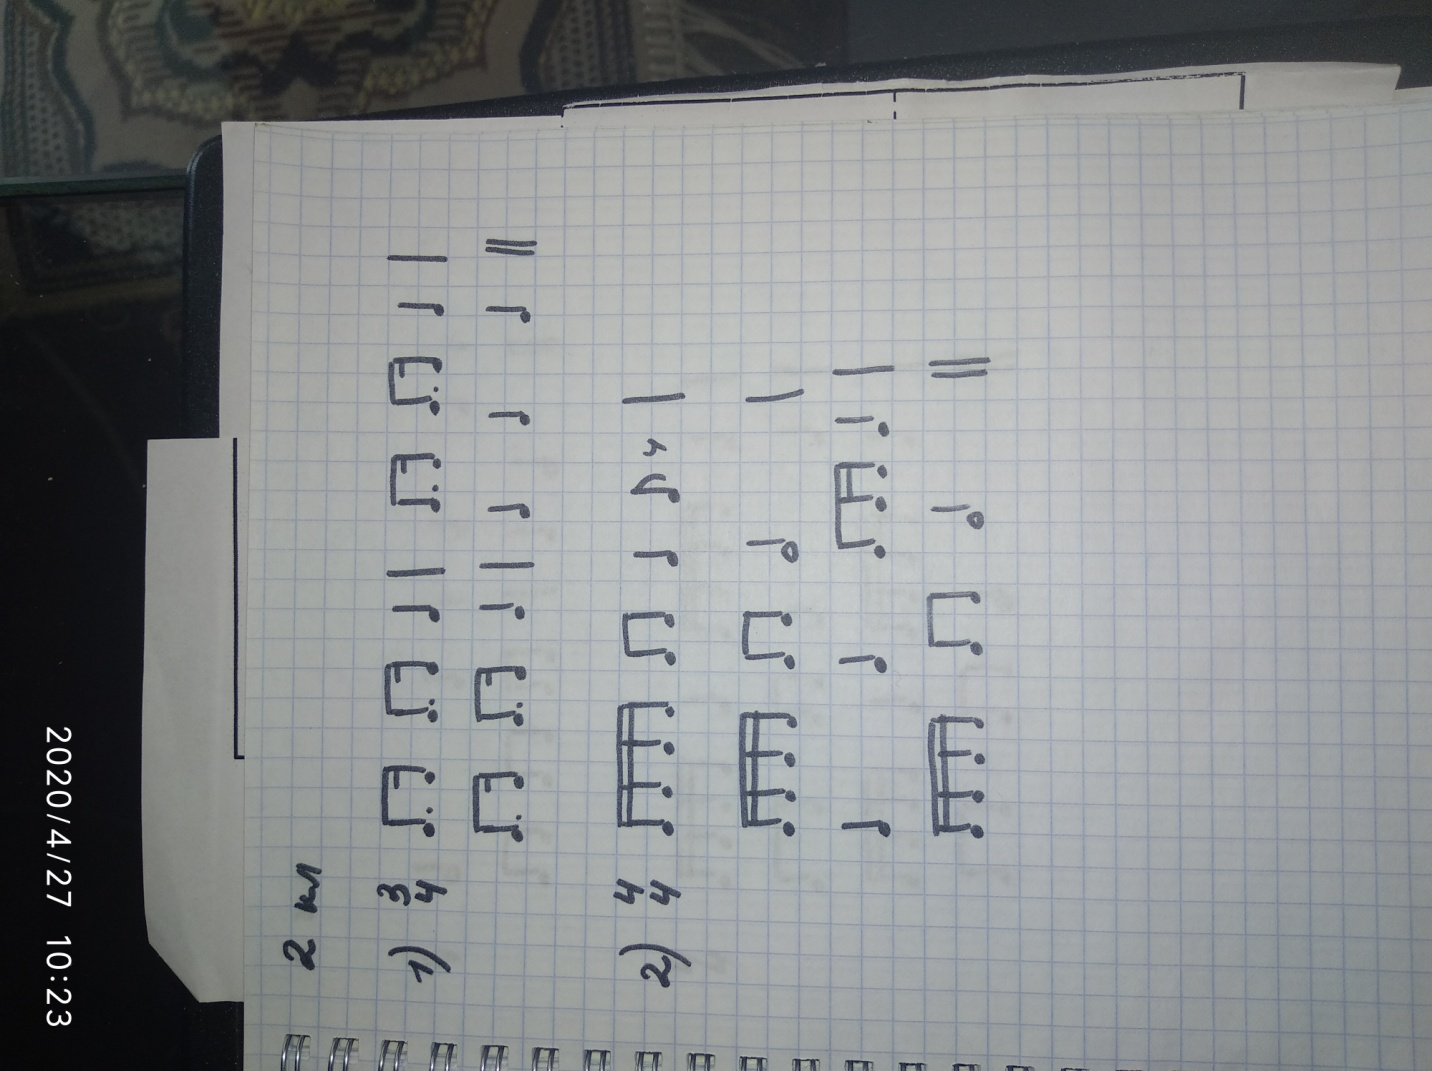 2 кл
1) 3/4
2) 4/4
2020/4/27 10:23